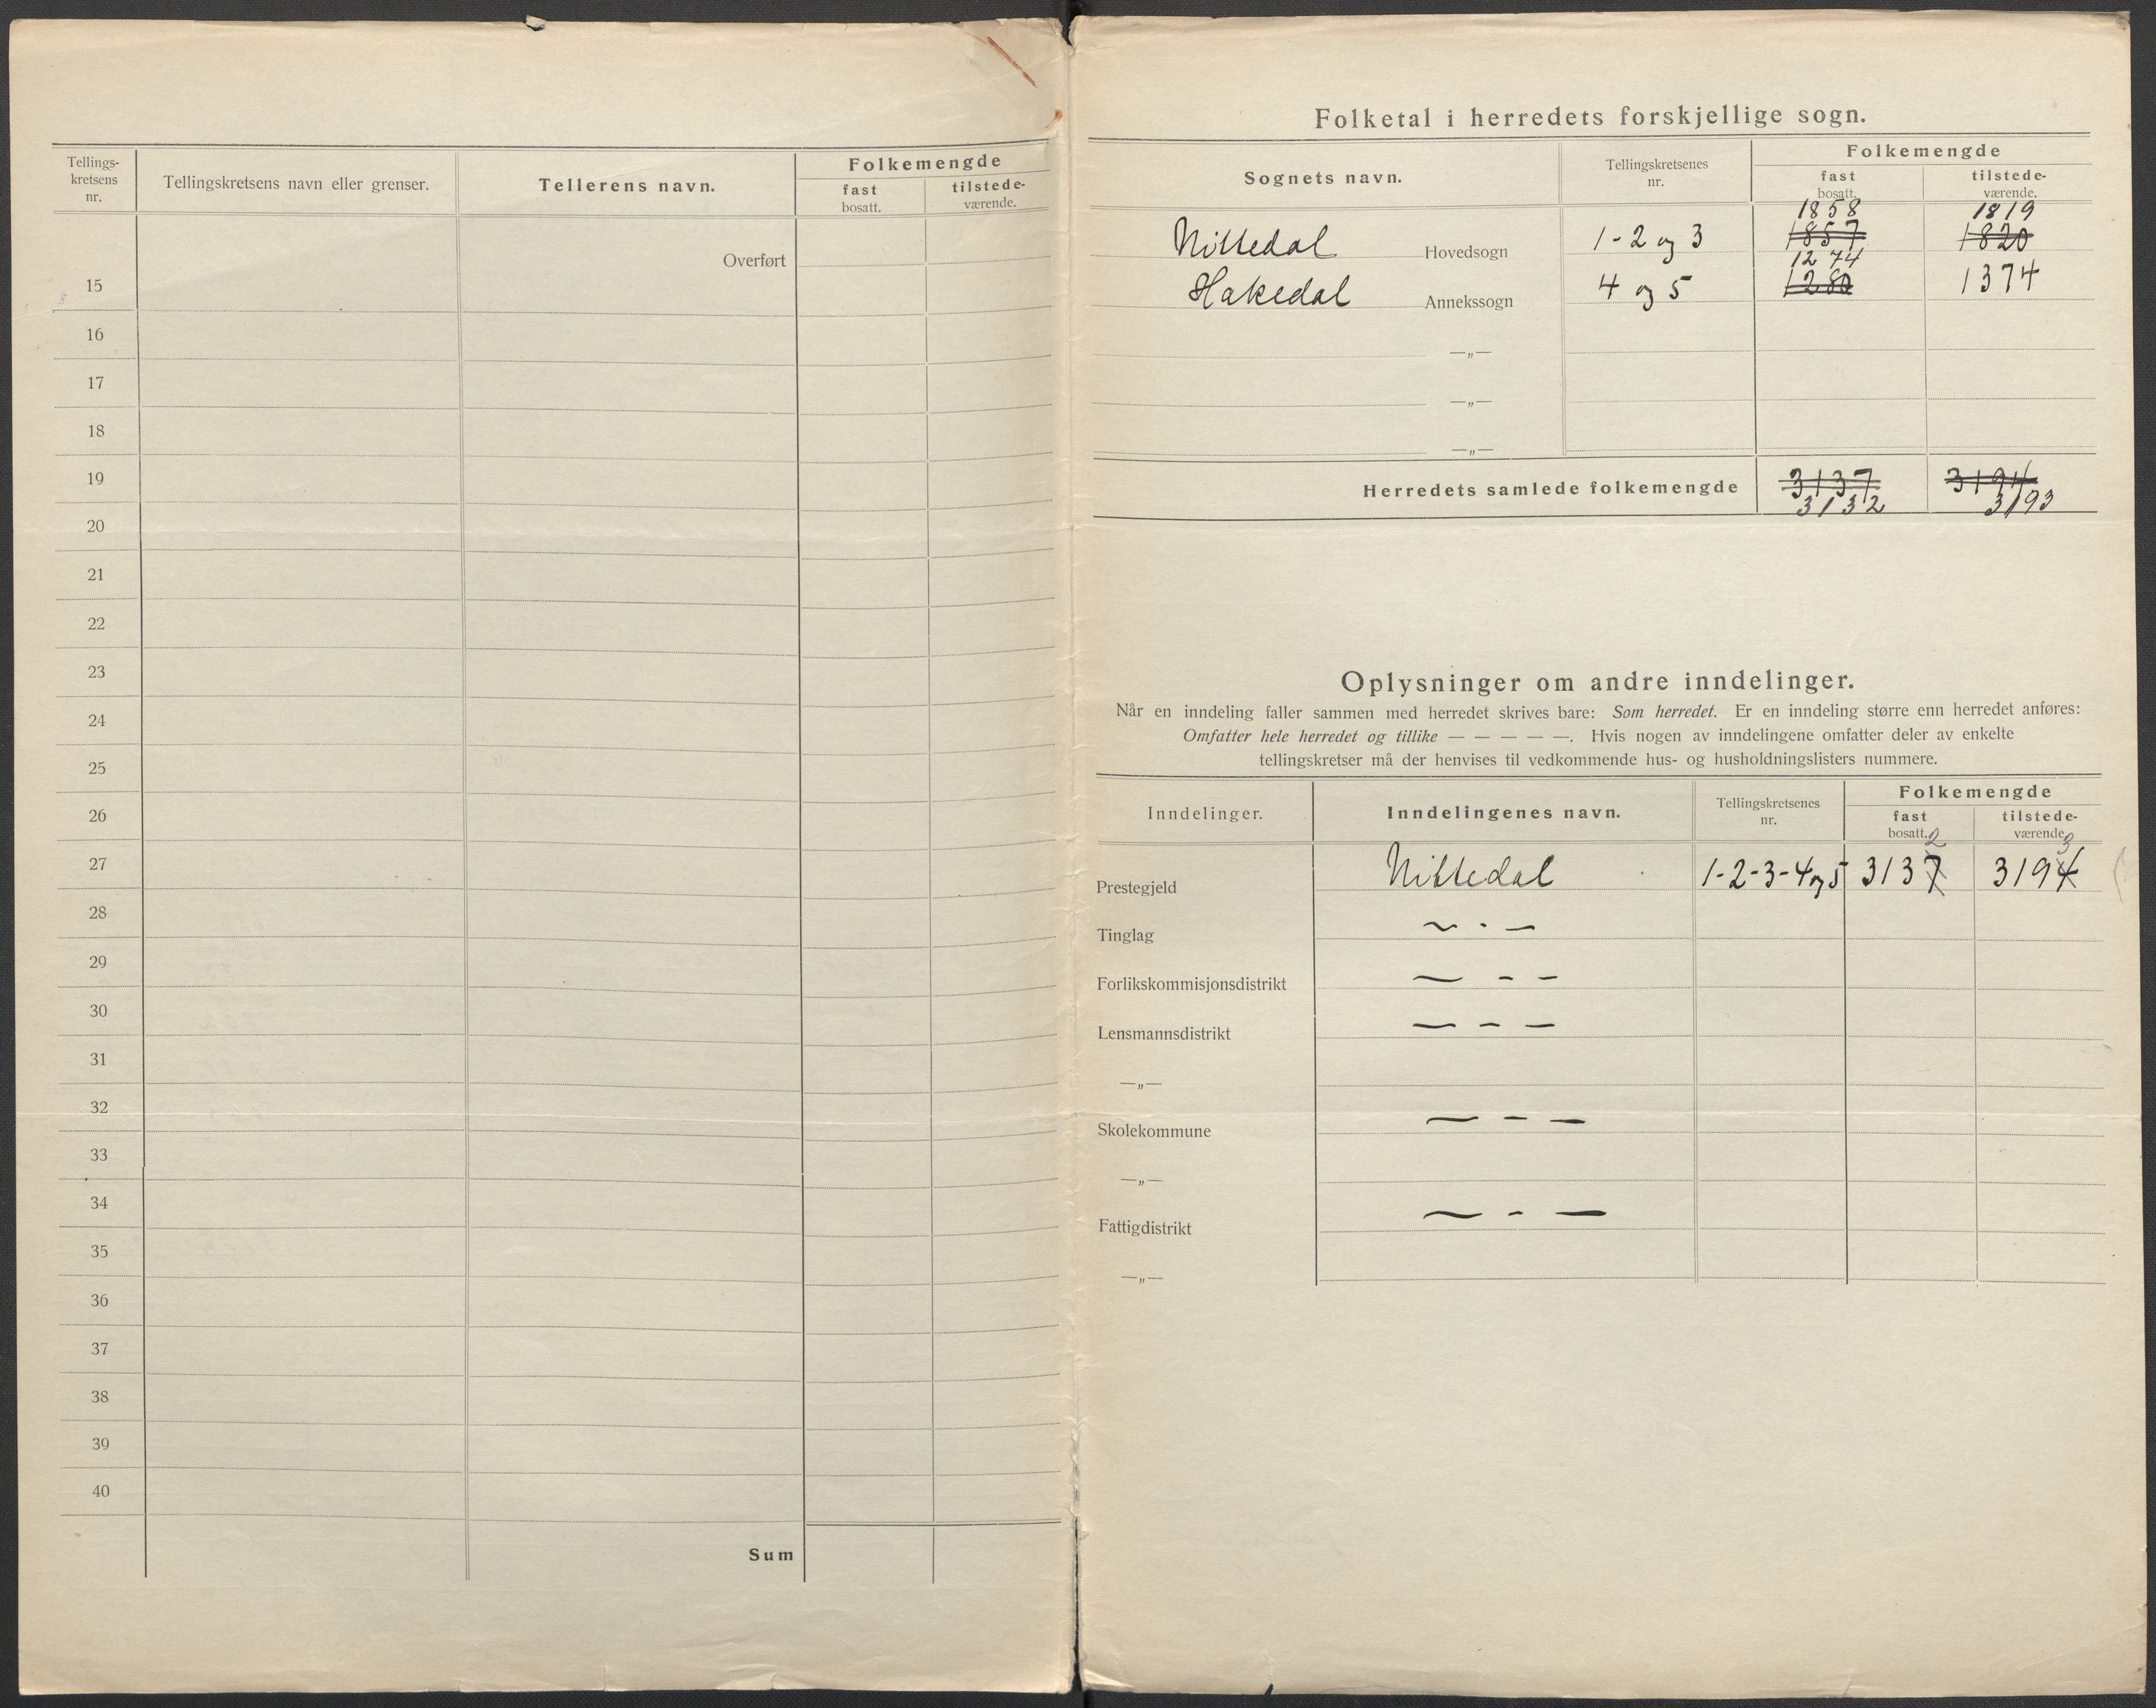 Tellings-
kretsens
nr.
Tellingskretsens navn eller grenser.
Tellerens navn.
Folkemengde
fast
bosatt.
tilstede-
værende.
Overført
15
16
17
18
19
20
21
22
23
24
25
26
27
28
29
30
31
32
33
34
35
36
37
38
39
40
Sum
Folketal i herredets forskjellige sogn.
Sognets navn.
Tellingskretsenes
nr.
Folkemengde
fast
bosatt.
tilstede-
værende.
1858 1819
Nittedal Hovedsogn 1-2 og 3 1857 1820
1274
Hakedal Annekssogn 4 og 5 1280 1374
—„—
—„—
—„—
Herredets samlede folkemengde 3137 3194
3132 3193
Oplysninger om andre inndelinger.
Når en inndeling faller sammen med herredet skrives bare: Som herredet. Er en inndeling større enn herredet anføres:
Omfatter hele herredet og tillike — — — — —. Hvis nogen av inndelingene omfatter deler av enkelte
tellingskretser må der henvises til vedkommende hus- og husholdningslisters nummere.
Inndelinger.
Inndelingenes navn.
Tellingskretsenes
nr.
Folkemengde
fast
bosatt.
tilstede-
værende.
2 3
Prestegjeld Nittedal 1-2-3-4 og 5 3137 3194
Tinglag — - —
Forlikskommisjonsdistrikt — - -
Lensmannsdistrikt — - —
—„—
Skolekommune — - —
—„—
Fattigdistrikt — - —
—„—